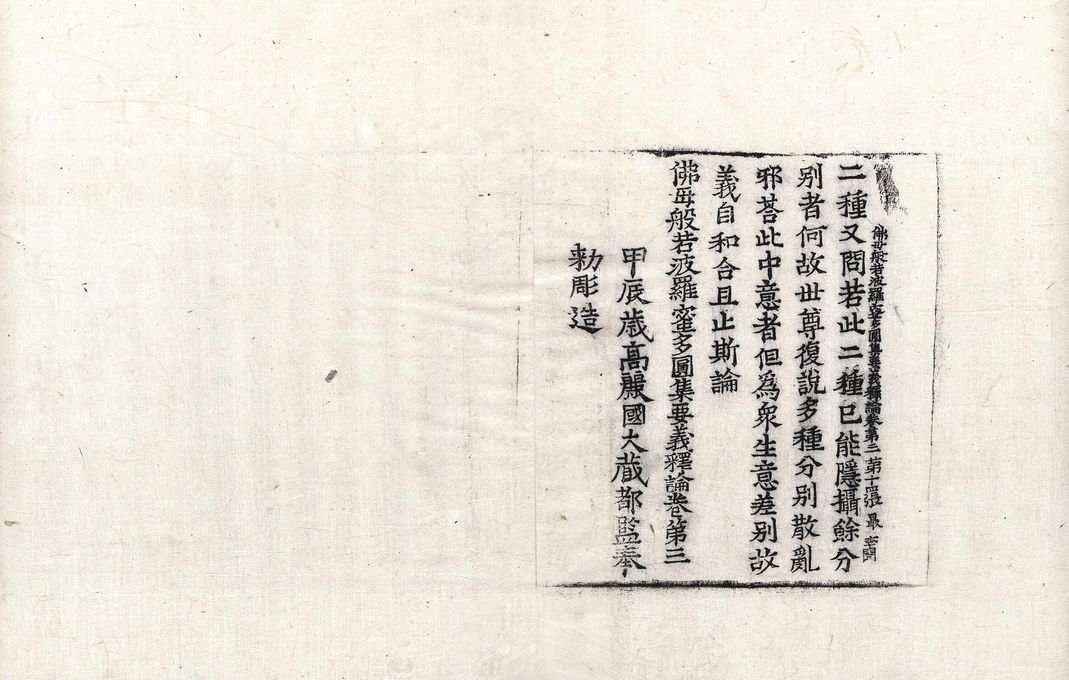 佛母般若波羅蜜多圓集要義釋論卷第三 第十四張 最
二種又問若此二種已能隱攝餘分
別者何故世尊復說多種分別散亂
邪荅此中意者但爲衆生意差別故
義自和合且止斯論
佛母般若波羅蜜多圓集要義釋論卷第三
甲辰歲高麗國大藏都監奉
勅彫造